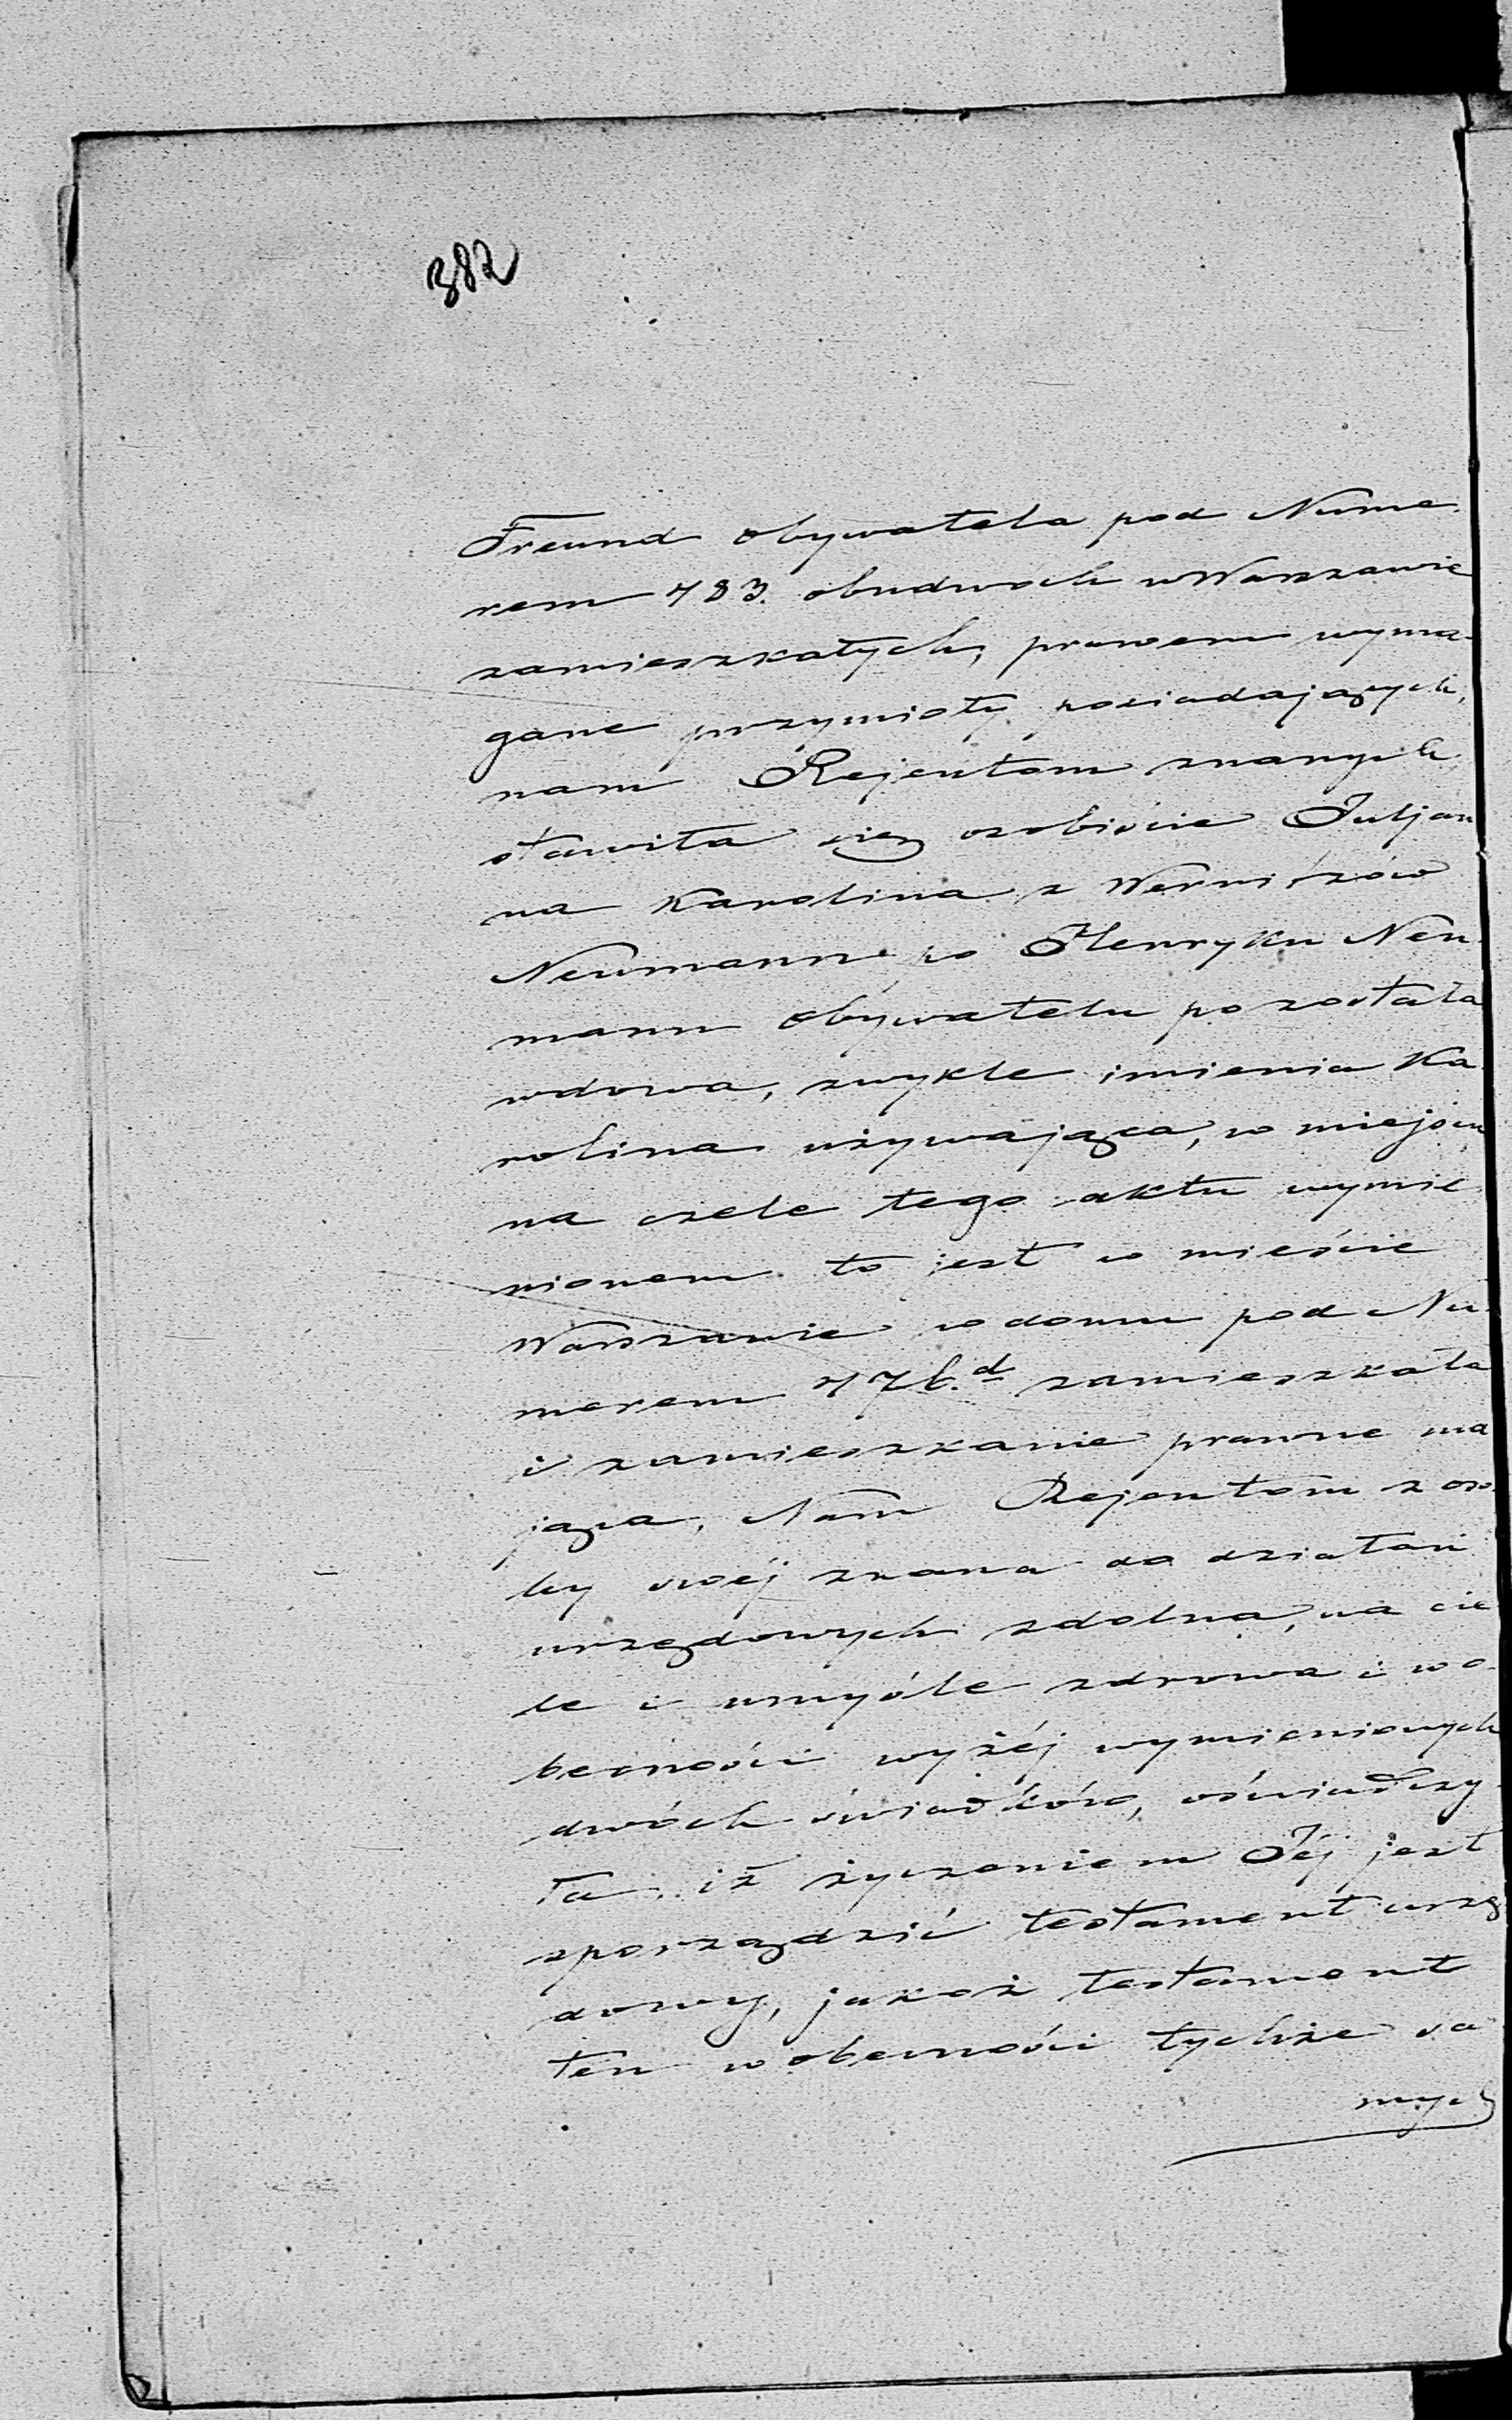 382
Freund obywatela pod Nume-
rem 783. obudwóch w Warszawie
zamieszkałych, prawem wyma-
gane przymioty posiadających,
nam Rejentom znanych,
stawiła się osobiście Juljan
na Karolina z Wernitzów
Neumann po Henryku Neu-
mann obywatelu pozostała
wdowa, zwykle imienia Ka
rolina używająca, w miejscu
na czele tego aktu wymie
nionem to jest w mieście
Warszawie w domu pod Nu-
merem zamieszkała
i zamieszkanie prawne ma
jąca, Nam Rejentom z oso-
by swéj znana do działań
urzędowych zdolna, na cie
le i umyśle zdrowa i w o-
becności wyżéj wymienionych
dwóch świadków, oświadczy-
ła, iż życzeniem Jéj jest
sporządzić testament urzę
dowy, jakoż testament
ten w obecności tychże sa
mych